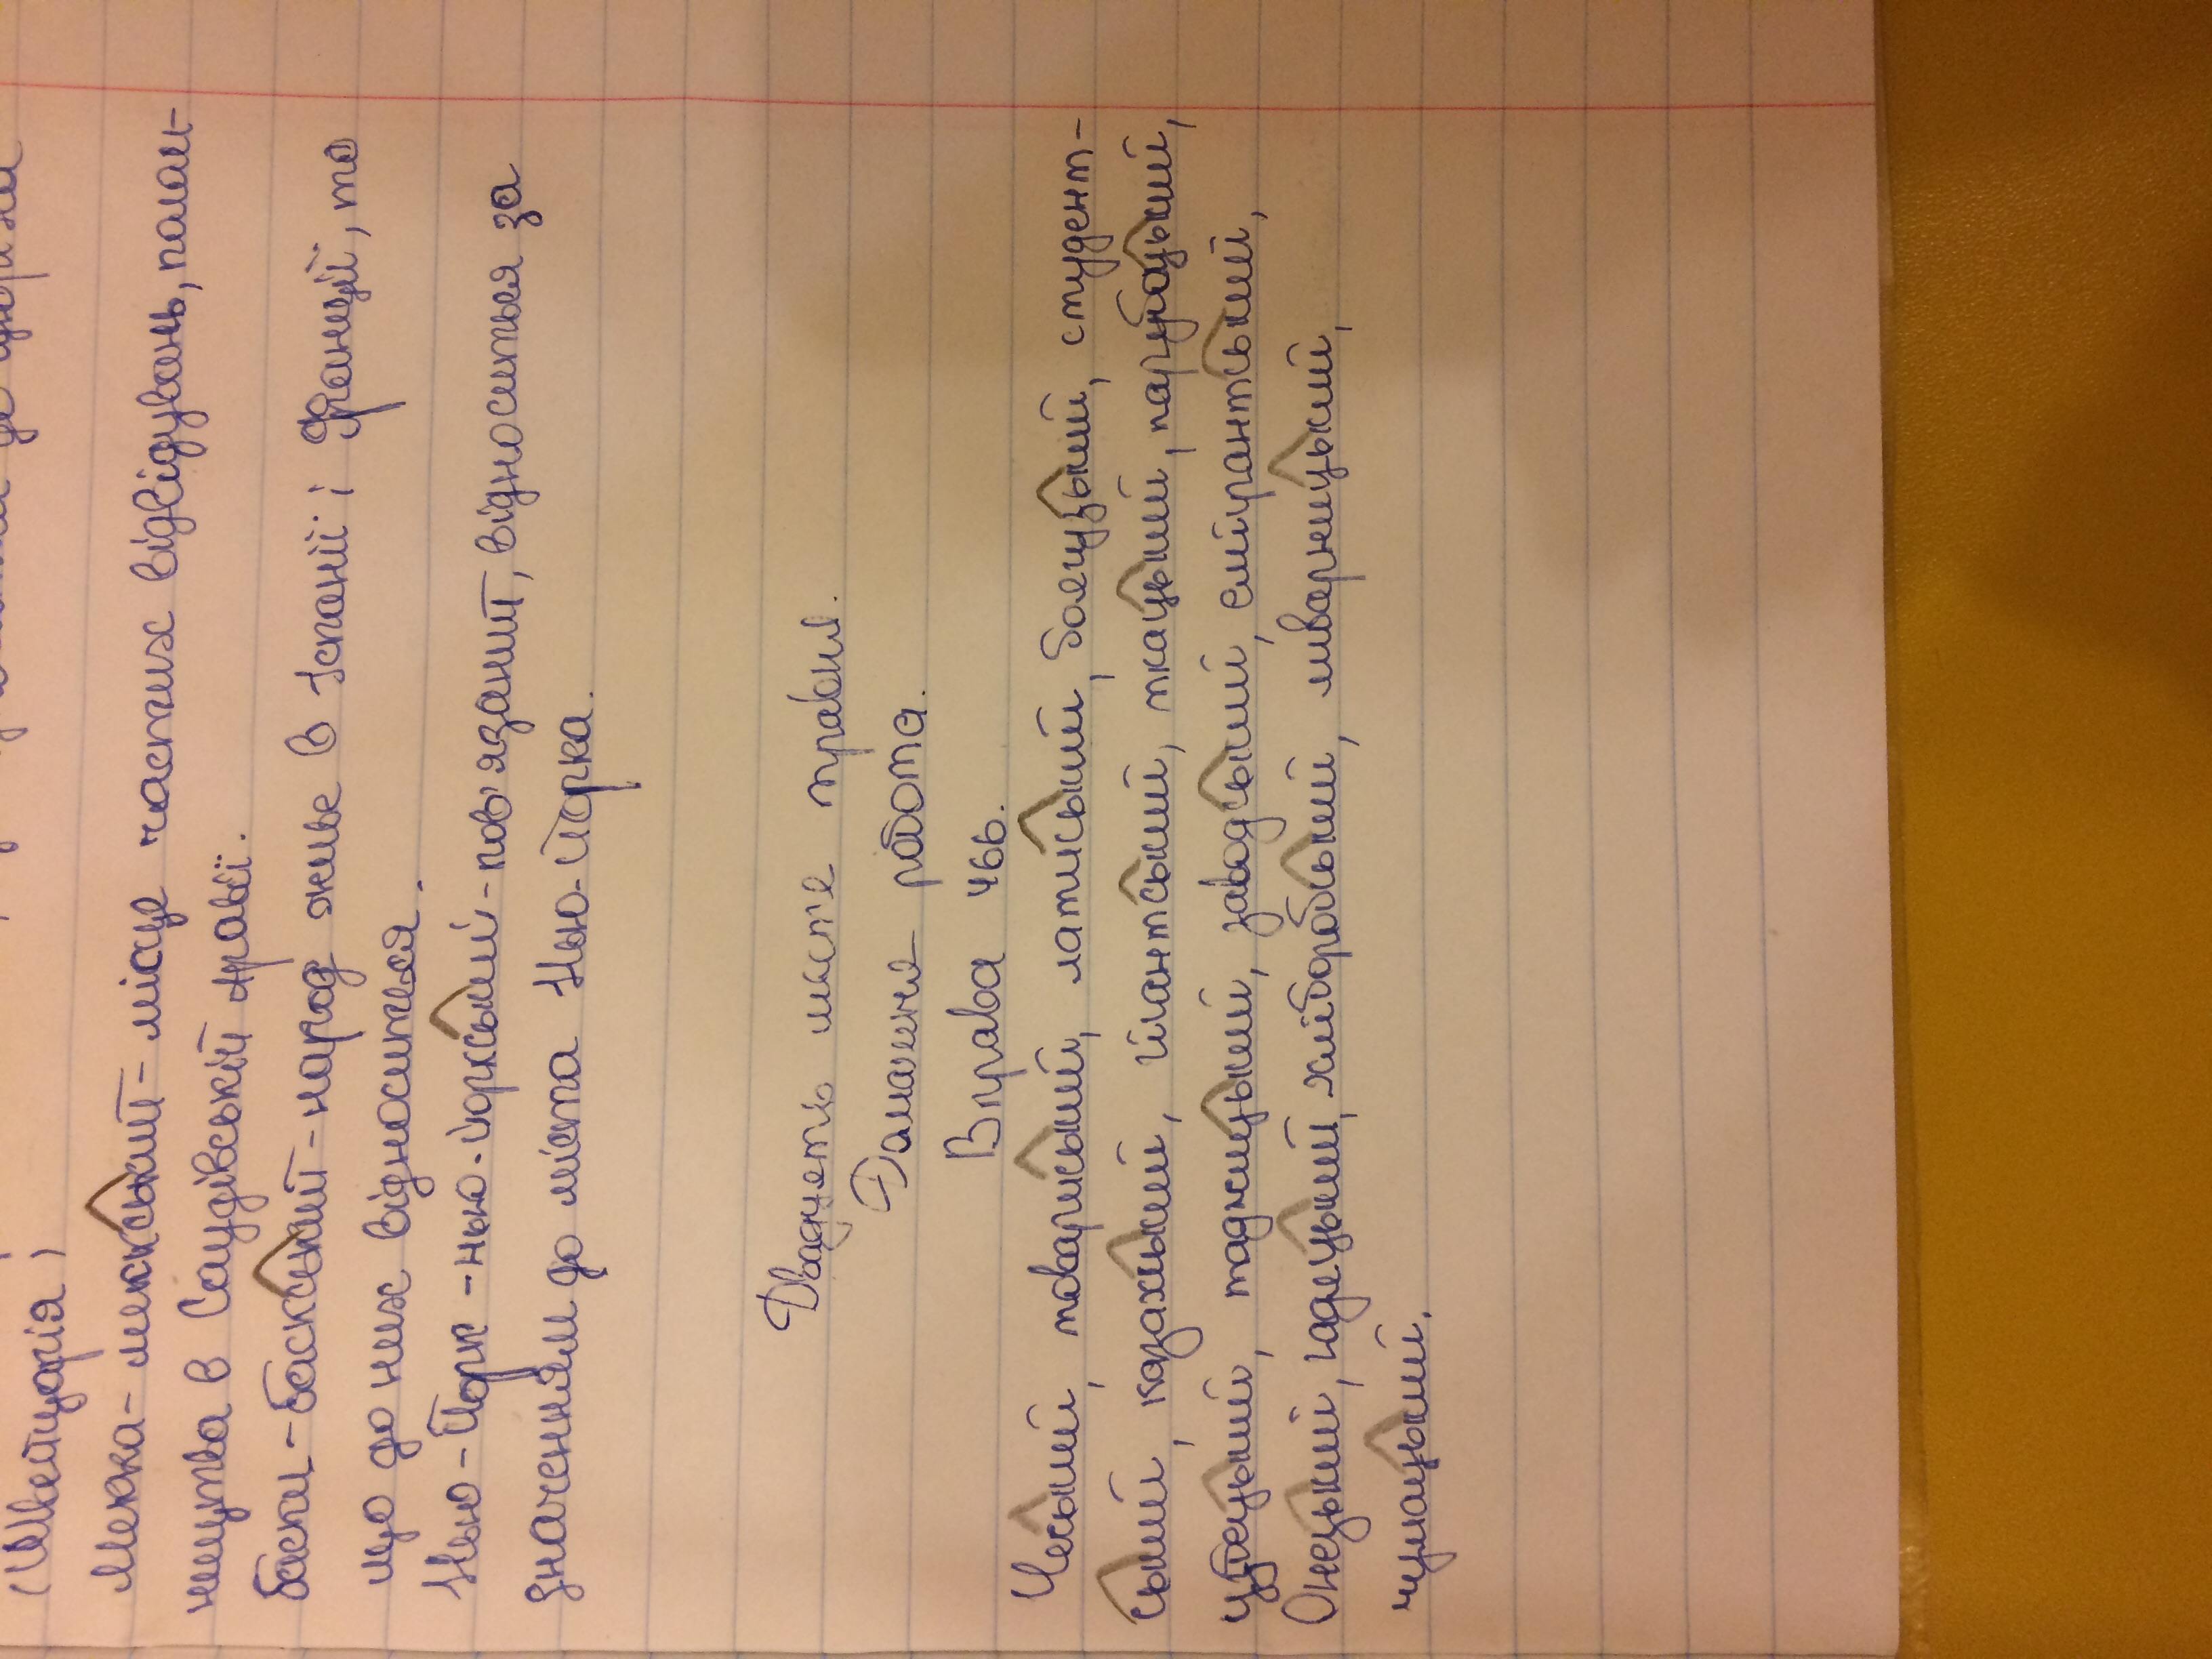 (Швейцарія)
Мекка - мекський - місце частих відвідувань, палом-
ництва в Саудівській Аравії.
Баски - баскський - народ живе в Іспанії і Франції, те
що до них відноситься.
Нью-Йорк - нью-йоркський - пов'язаний, відноситься за
значенням до міста Нью-Йорка.
Двадцять шосте травня.
Домашня робота.
Вправа 466.
Чеський, товариський, латиський, болецький, студент-
ський, казахський, гігантський, ткацький, парубоцький,
узбецький, таджицький, заводський, емігрантський,
Онецький, гадецький, хліборобський, шварницький,
чумацький.